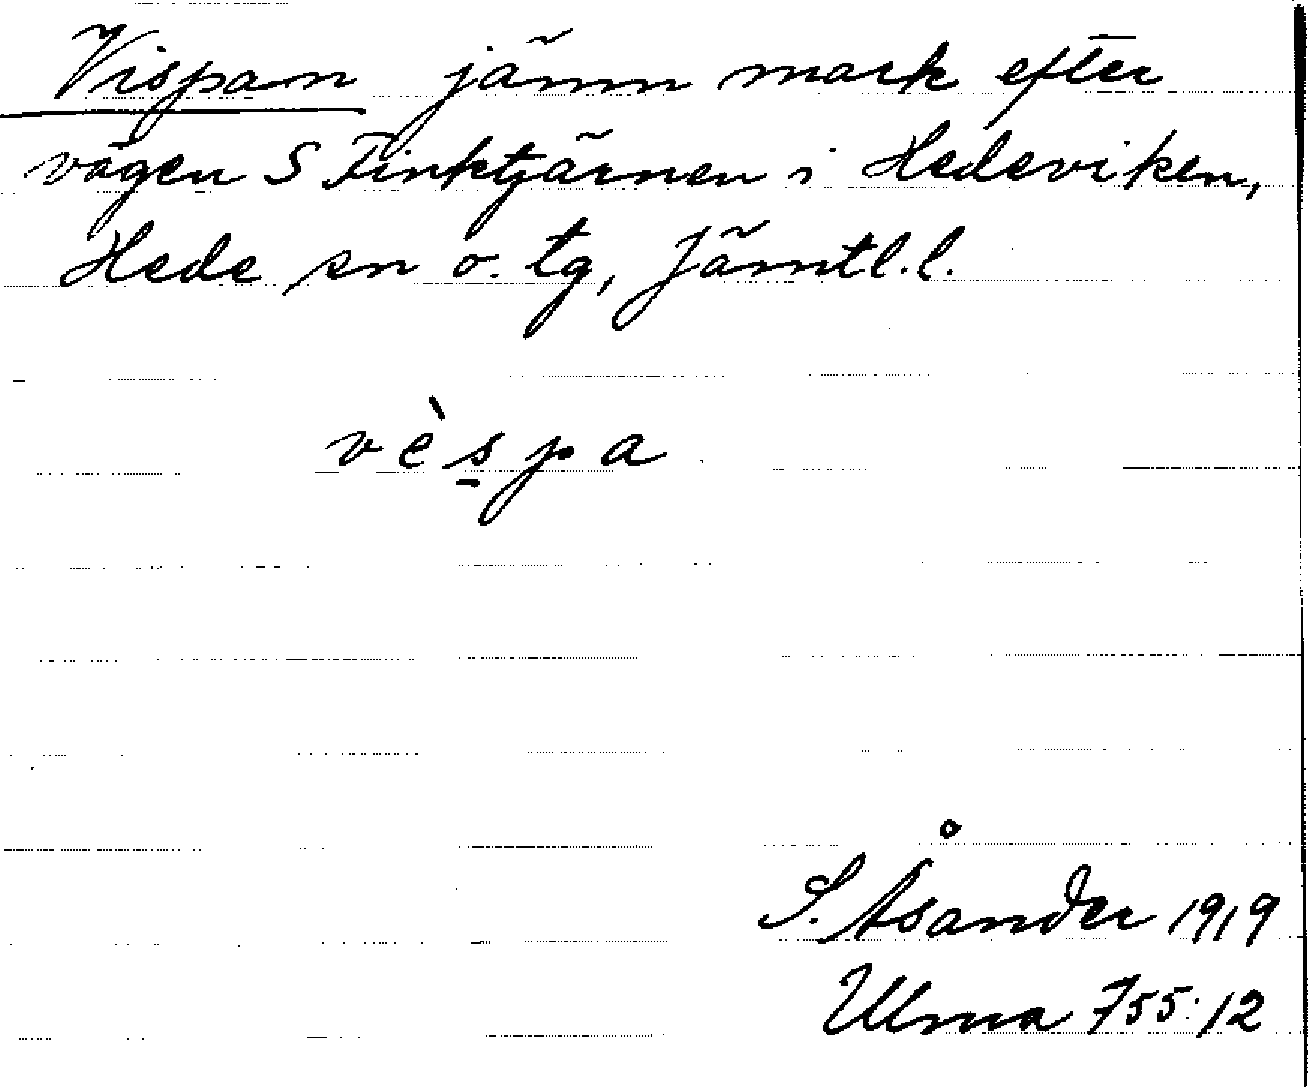 Vispan jämn mark efter
vägen S Finktjärnen i Hedeviken,
Hede sn o. tg, Jämtl.l.
vèspa
S. Åsander 1919
Ulma 755:12